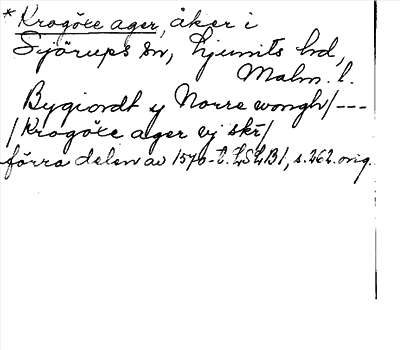 * Krogöke ager, åker i
Sjörups sn, Ljunits hd,
Malm. l.
Bygiordt y Norre wongh/---
/Krogöke ager ej skr/
förra delen av 1570-t. LSLB1, s. 262. orig.